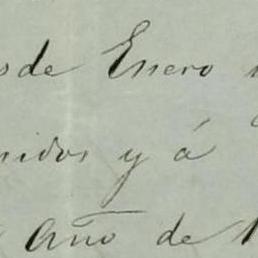 sde Enero
nidos y á
Año de